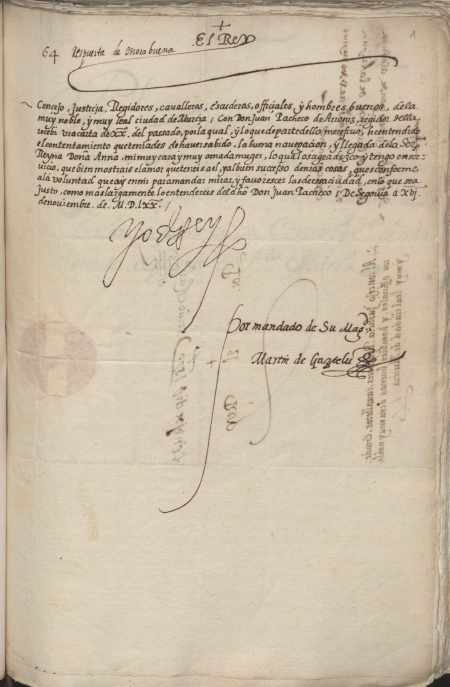 El Rey
64 Respuesta de norabuena
Concejo, Justicia, Regidores, cavalleros, escuderos, officiales, y hombres buenos, de la
muy noble, y muy leal ciudad de Murcia, Con Don Juan Pacheco de Arronis, regidor
recebi vra carta de XX. del passado, por la qual, y lo que de parte della me refirio, he entendido
el contentamiento que teniades de haver sabido, la buena navegacion, y llegada de la Sereº
Reyna Doña Anna, mi muy cara y muy amada muger, lo qual os agradezco y tengo en ser
vicio, que bien mostrais el amor que teneis a al buen sucesso de mis cosas, que es conforme
a la voluntad que ay en mi para mandar mirar, y favorescer las de essa ciudad, en lo que sea
justo, como mas largamente lo entendereis del dho Don Juan Pacheco, De Segovia a XIJ
de noviembre. de M.D.LXX.
Yo el Rey
Por mandado de Su Magd
Martin de Gaztelu